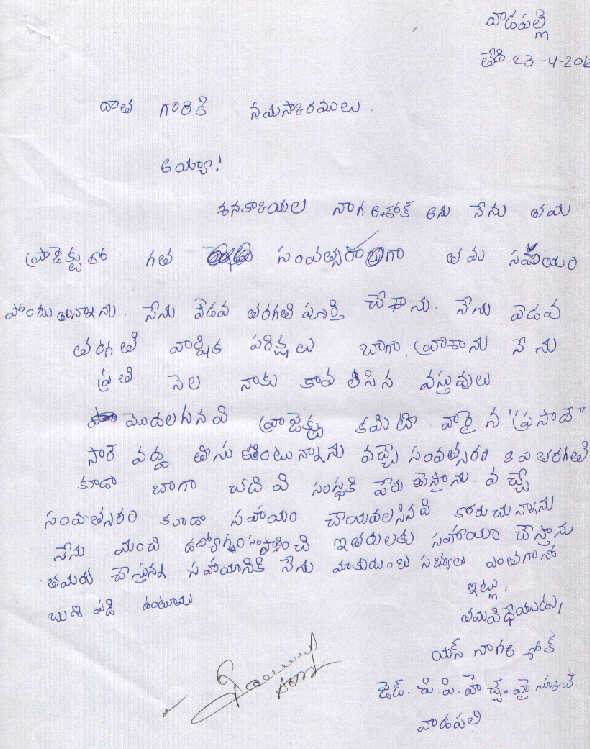 వాడపల్లి
తేది 23-4-201
దాత గారికి నమస్కారములు.
అయ్యా!
శనకాయల నాగఅశోక్ అను నేను తమ
ప్రాజెక్టులో గత సంవత్సరంగా తమ సహయం
పొందుతున్నాను. నేను ఏడవ తరగతి పూర్తి చేశాను. నేను ఏడవ
తరగతి వార్షిక పరిక్షలు బాగా వ్రాశాను నేను
ప్రతి నెల నాకు కావలసిన వస్తువులు
మొదలగునవి ప్రాజెక్టు కమిటి వారైన "ప్రసాద్"
సార్ వద్ద తీసుకుంటున్నాను వచ్చే సంవత్సరం 8వ తరగతి
కూడా బాగా చదివి సంస్థకి పేరు తెస్తాను వచ్చే
సంవత్సరం కూడా సహాయం చేయవలసినది కోరుచున్నాను
నేను మంచి ఉద్యోగం సంపాదించి ఇతరులకు సహాయం చేస్తాను
తమరు చేస్తున్న సహాయానికి నేను మాకుటుంబ సభ్యులు ఎంతగానో
ఋణపడి ఉంటాము
ఇట్లు,
తమవిధేయుడు,
యస్ నాగఅశోక్
జెడ్. పి. పి. హెచ్చ్. హై స్కూల్
వాడపలి